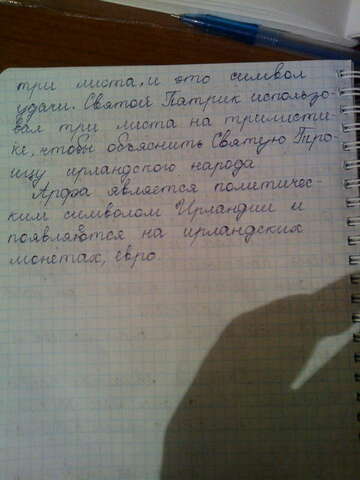 три листа, и это символ
удачи. Святой Патрик использо-
вал три листа на трилистни-
ке, чтобы объяснить Святую Тро-
ицу ирландского народа
Арфа является политичес-
ким символом Ирландии и
появляются на ирландских
монетах, евро.